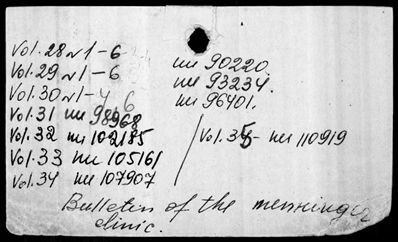 Vol. 28 N 1-6
Vol. 29 N 1-6
Vol. 30 N 1-4, 6
Vol. 31 ми 98968
Vol. 32 ми 102185
Vol. 33 ми 105161
Vol. 34 ми 107907
ми 90220.
ми 93234.
ми 96401.
Vol. 35- ми 110919
Bulletin of the menninger
clinic.